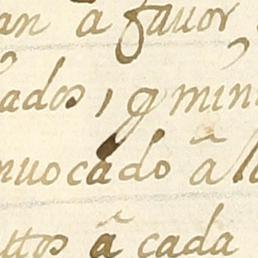 an â favor
ados, q̃ min
nuocado â la
ttos â cada